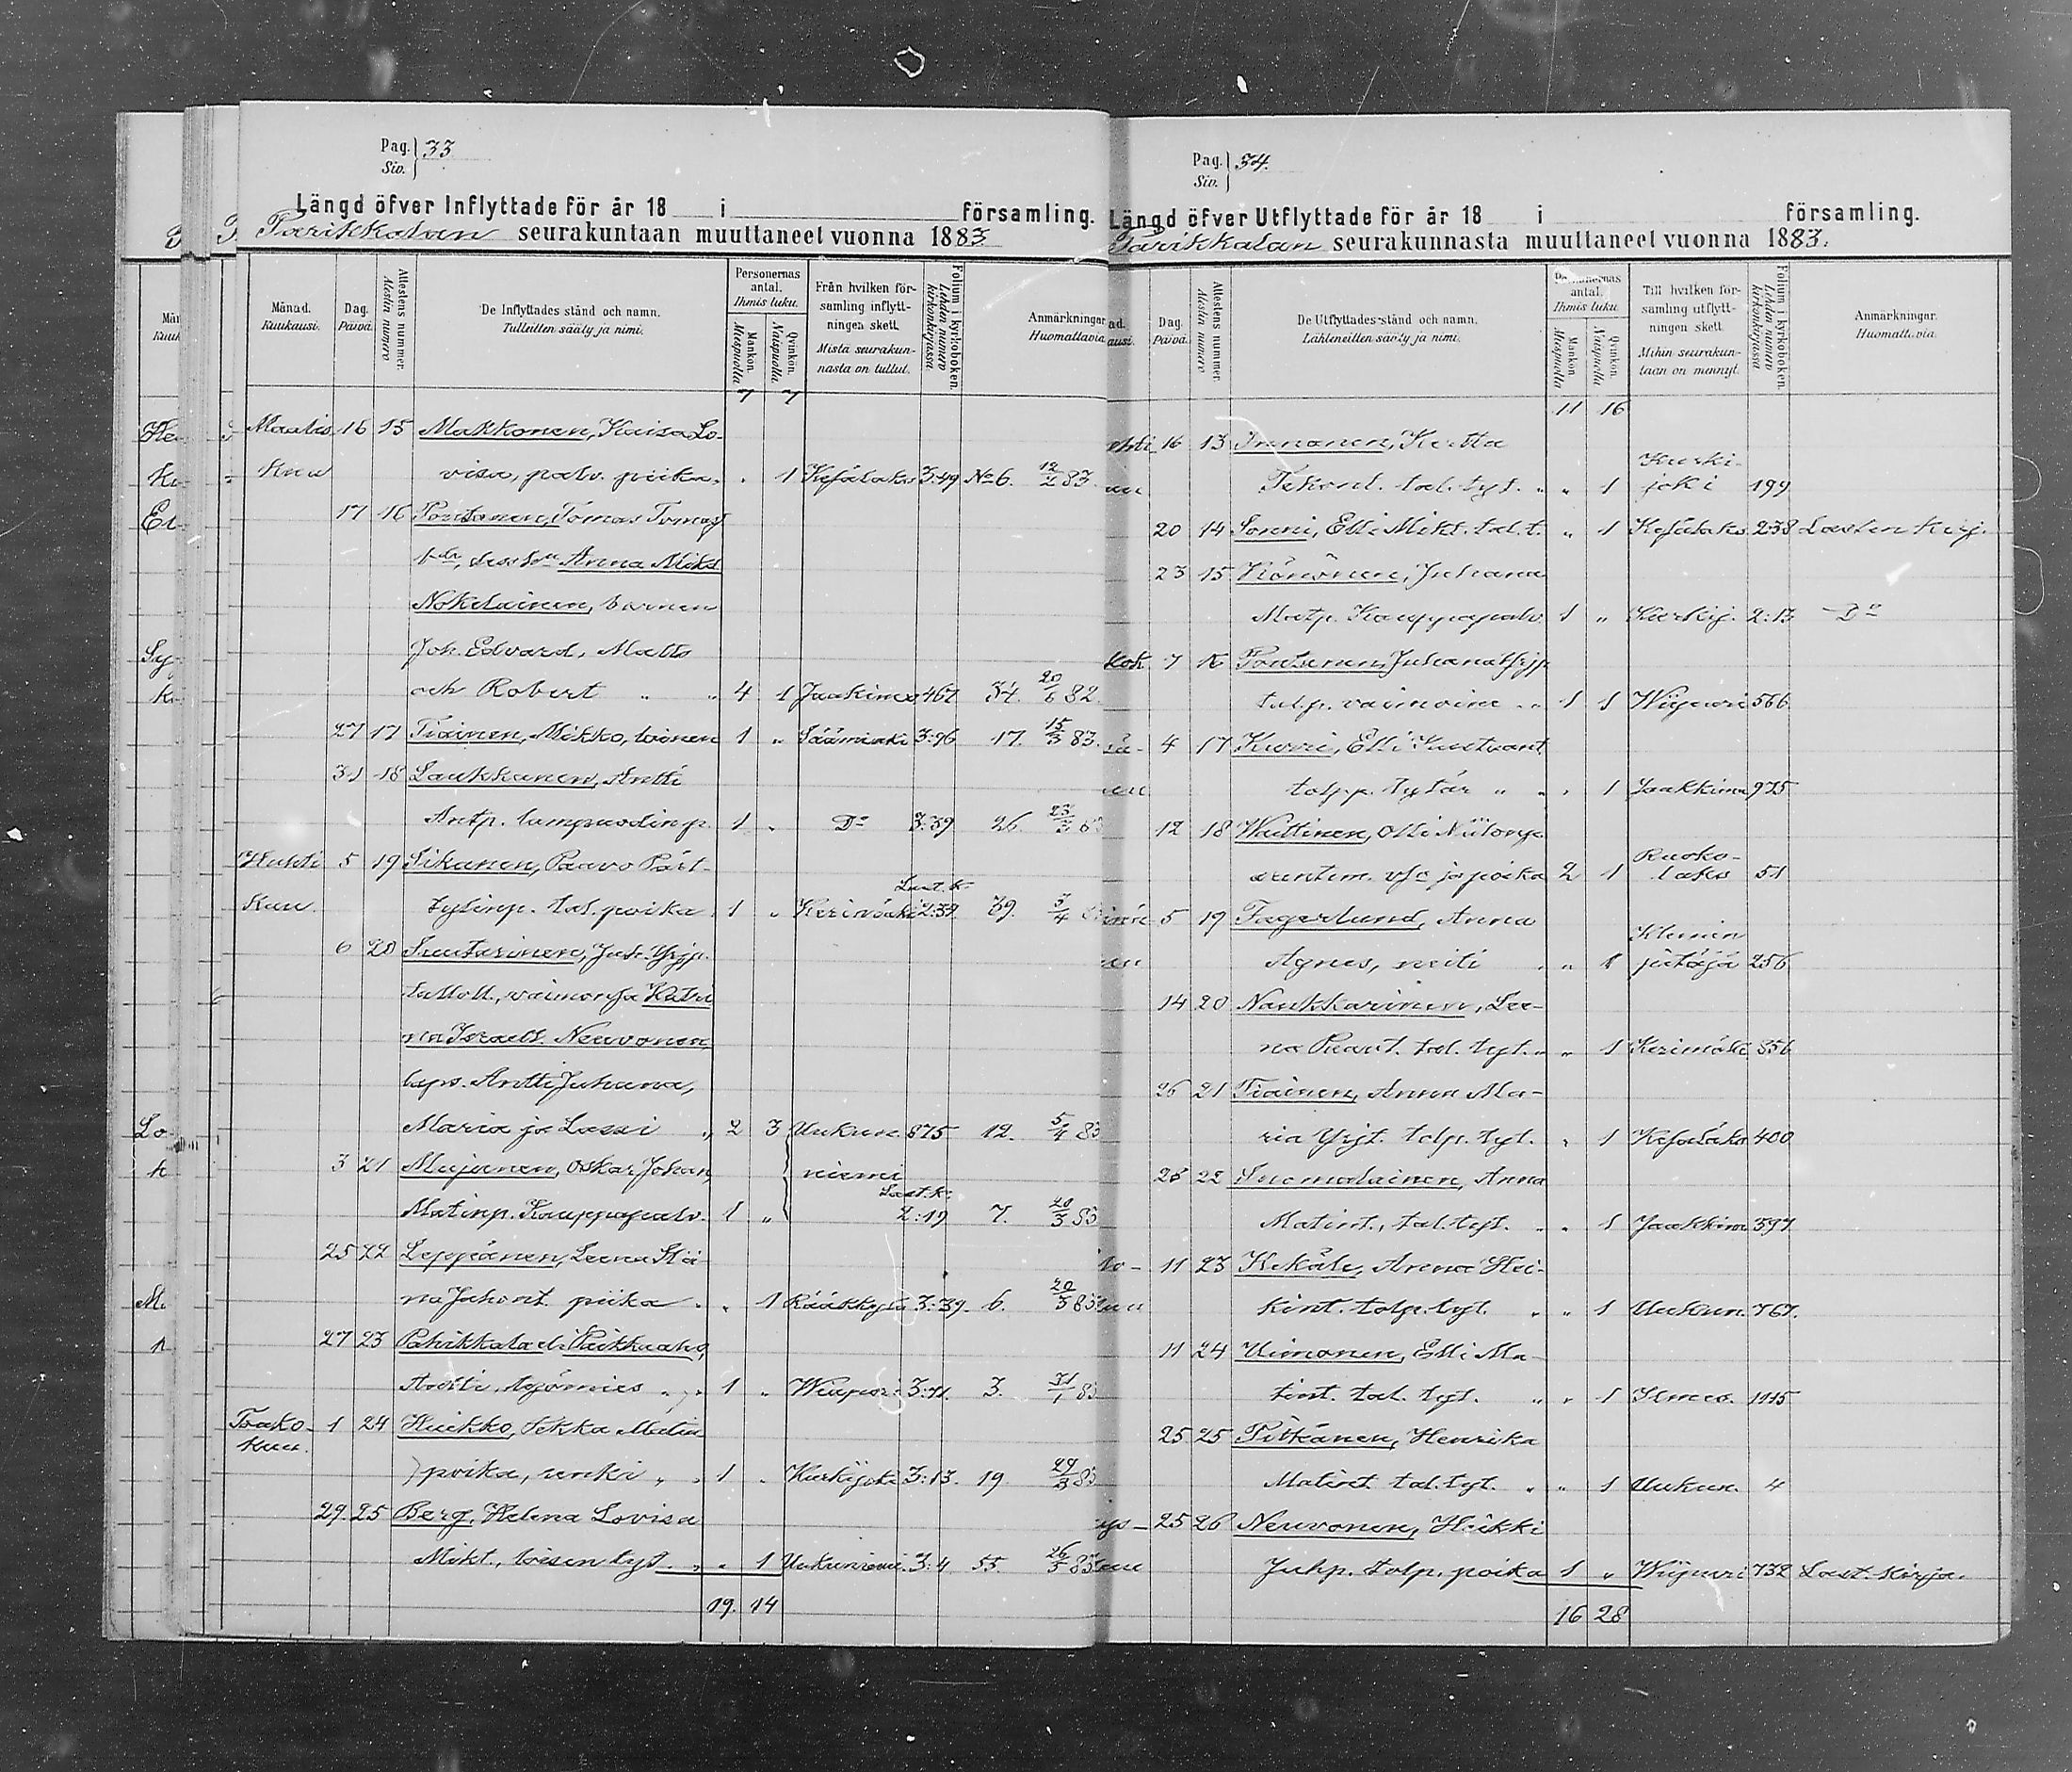 Pag. 33
Siv.
Längd öfver Inflyttade för år 18 i församling.
Parikkalan seurakuntaan muuttaneet vuonna 1883
Månad. Kuukausi.
Dag. Päivä.
Attestens nummer. Atestin numero
De Inflyttades stånd och namn. Tulleitten sääty ja nimi.
Personernas antal. Ihmis luku.
Mankön. Miespuolia
Qvinkön. Naispuolia
Från hvilken församling inflyttningen skett. Mistä seurakunnasta on tullut.
Folium i kyrkoboken. Lehden numero kirkonkirjassa
Anmärkningar. Huomattavia.
7 7
Maalis 16 15 Makkonen, Kaisa Lo-
kuu visa, palv. piika 1 Kesälaks 3:49 No 6. 12/2 83.
17 16 Pontanen, Tomas Tomas
Anna Mikts
Nokelainen, barnen
Joh. Edvard, Matts
och Robert " " 4 1 Jaakima 467 34. 20/6 82.
27 17 Tiainen, Mikko, loinen 1 " Säämink 3:96 17. 15/3 83.
31 18 Laukkanen, Antti
Antp. lampuodin p. 1 " Do 3:39 26. 23/3 83
Huhti 5 19 Sikanen, Paavo Pärt-
Last. k.
kuu. tylinp. tal. poika 1 " Kerimäki 2:39 39. 3/4 83
6 20 Suutarinen, Juh. Yrjp.
talloll., vaimonsa Katri
na Israelt. Neuvonen
laps. Antti Juhana,
Maria ja Lassi " 2 3 Uukun. 875 12. 5/4 83
3 21 Mujunen, Oskar Johan niemi
Last. k.
Matinp. Kauppapalv. 1 " 2:19 7. 20/3 83
25 22 Leppänen, Leena Stii-
na Juhont. piika " 1 Rääkkylä 3:39. 6. 20/3 83
27 23 Pahikkala el. Paikkaaho,
Antti, työmies " 1 " Wiipuri 3:71. 3. 31/1 83
Touko- 1 24 Huikko, Pekka Matin
kuu.
poika, renki " 1 " Kurkijoki 3:13. 19. 29/3 83
29. 25 Berg, Helena Lovisa
Mikt., loisen tyt. " " 1 Uukuniemi 3:4 55. 26/5 83
19. 14
Pag. 34.
Siv.
Längd öfver Utflyttade för år 18 i församling.
Parikkalan seurakunnasta muuttaneet vuonna 1883.
Dag. Päivä.
Attestens nummer. Atestin numero
De Utflyttades stånd och namn. Lähteneitten sääty ja nimi.
Personernas antal. Ihmis luku.
Mankön. Miespuolia
Qvinkön. Naispuolia
Till hvilken församling utflyttningen skett. Mihin seurakuntaan on mennyt.
Folium i kyrkoboken. Lehden numero kirkonkirjassa
Anmärkningar. Huomattavia.
11 16
16 13 Innanen, Kertta
Kurki-
tal. tyt. " " 1 joki 199
20 14 Sonni, Elli Mikt. tal. t. " 1 Kesälaks 2:38 Lasten kirj.
23 15 Juhana
Matp. Kauppapalv. 1 " Kurkij. 2:13 Do
7 16 Pontinen, Juhana Yrjp
talp. vaimoine " 1 1 Wiipuri 566
4 17 Kurri, Elli Kustaant
talp. tytär " " 1 Jaakkima 975
12 18 Wattinen, Olli
Ruoko-
ja poika 2 1 laks 51
5 19 Fagerlund, Anna
Agnes, neiti " " 1 256
14 20 Naukkarinen, Lee-
na Paavt. tal. tyt. " " 1 Kerimäki 856
26 21 Tiainen, Anna Ma-
ria Yrjt. talp. tyt. " 1 Kesälaks 400
26 22 Suomalainen, Anna
Matint., tal. tyt. " " 1 Jaakkima 397
11 23 Kekäle, Anna Hei-
kint. talp. tyt. " " 1 Uukun. 767.
11 24 Uimonen, Elli Ma-
tint. tal. tyt. " " 1 Ilmes. 1115
25 25 Pitkänen, Henrika
Matint. tal. tyt. " " 1 Uukun. 4
25 26 Neuvonen, Heikki
Juhp. talp. poika 1 " Wiipuri 732 Last. kirja.
16 28